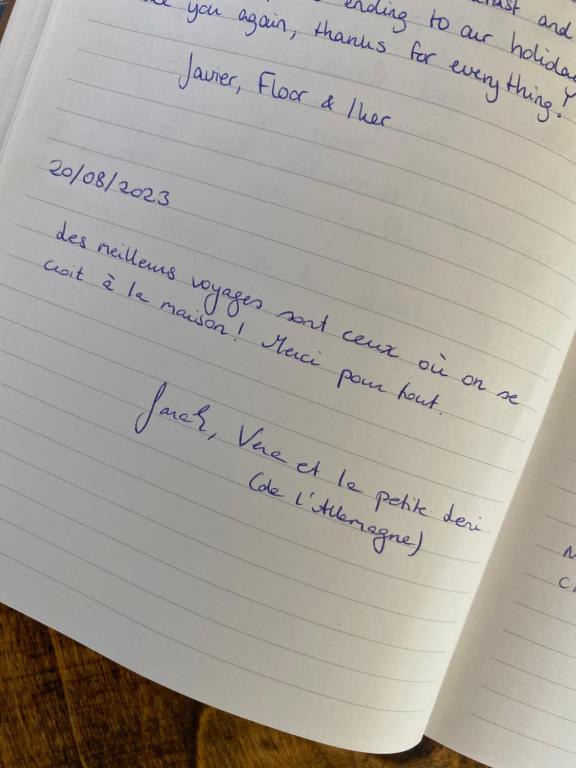 ending to our holida
you again, thanks for everything!
Javier, Floor & Iker
20/08/2023
des meilleurs voyages sont ceux où on se
croit à la maison! Merci pour tout.
Sarah, Vera et la petite
(de l'Allemagne)